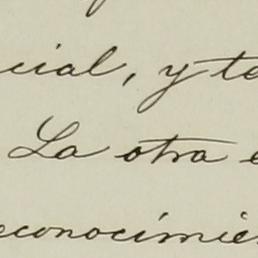 cial, y ta
La otra e
econocimie